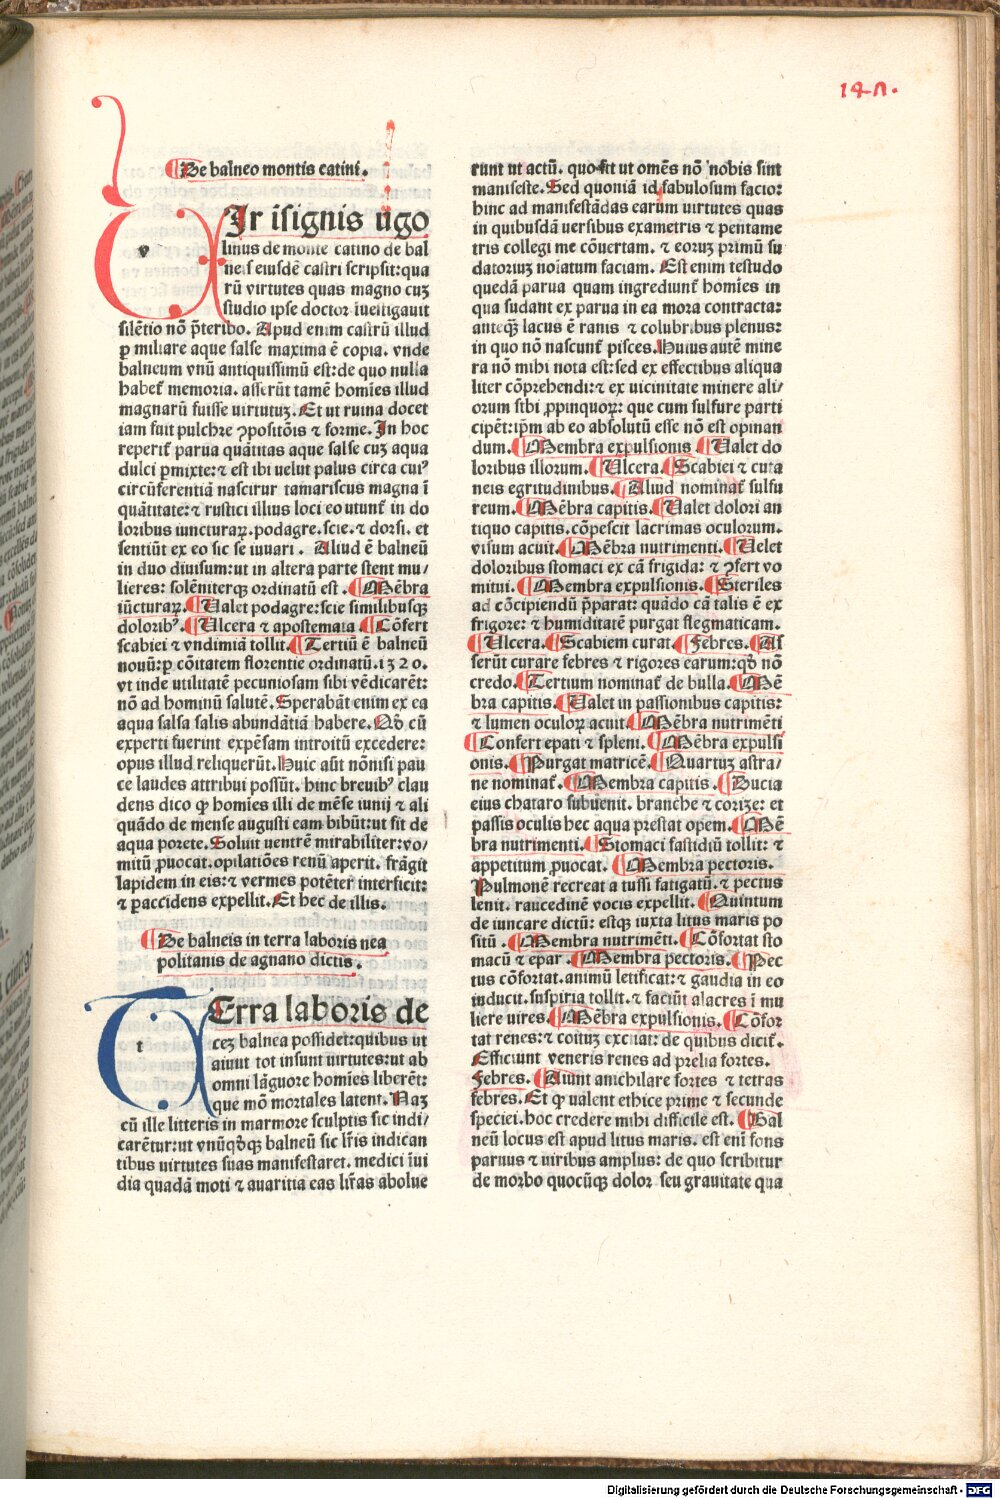 14-n.
De balneo montis catini.
VIr isignis ugo
linus de monte catino de bal
neis eiusdē castri scripsit:qua
rū virtutes quas magno cuʒ
studio ipse doctor īuestigauit
silētio nō p̄teribo. Apud enim castrū illud
ꝑ miliare aque salse maxima ē copia. vnde
balneum vnū antiquissimū est:de quo nulla
habet᷑ memoria. asserūt tamē homīes illud
magnarū fuisse uirtutuʒ. Et ut ruina docet
iam fuit pulchre ꝯpositōis ⁊ forme. In hoc
reperit᷑ parua quātitas aque salse cuʒ aqua
dulci ꝑmixte:⁊ est ibi uelut palus circa cuiꝰ
circūferentiā nascitur tamariscus magna ī
quātitate:⁊ rustici illius loci eo utunt᷑ in do
loribus iuncturaꝝ.podagre.scie.⁊ dorsi. et
sentiūt ex eo sic se iuuari. Aliud ē balneū
in duo diuisum:ut in altera parte stent mu/
lieres: solēniterqꝫ ordinatū est. Mēbra
iūcturaꝝ. Ualet podagre:scie similibusqꝫ
doloribꝰ. Ulcera ⁊ apostemata. Cōfert
scabiei ⁊ vndimiā tollit. Tertiū ē balneū
nouū:ꝑ cōitatem florentie ordinatū.1320.
vt inde utilitatē pecuniosam sibi vēdicarēt:
nō ad hominū salutē. Sperabāt enim ex ea
aqua salsa salis abundātiā habere. Qđ cū
experti fuerint expēsam introitū excedere:
opus illud reliquerūt. Huic aūt nōnisi pau
ce laudes attribui possūt. hinc breuibꝰ clau
dens dico ꝙ homīes illi de mēse iunij ⁊ ali
quādo de mense augusti eam bibūt:ut fit de
aqua porete. Soluit uentrē mirabiliter:vo/
mitū ꝓuocat.opilatiōes renū aperit. frāgit
lapidem in eis:⁊ vermes potēter interficit:
⁊ ꝑaccidens expellit. Et hec de illis.
De balneis in terra laboris nea
politanis de agnano dictis.
TErra laboris de
ceʒ balnea possidet:quibus ut
aiunt tot insunt uirtutes:ut ab
omni lāguore homīes liberēt:
que mō mortales latent. Naʒ
cū ille litteris in marmore sculptis sic indi/
carētur:ut vnūqđqꝫ balneū sic lr̄is indican
tibus uirtutes suas manifestaret. medici īui
dia quadā moti ⁊ auaritia eas lr̄as abolue
runt ut actū. quo fit ut omēs nō nobis sint
manifeste. Sed quoniā id fabulosum facio:
hinc ad manifestādas earum uirtutes quas
in quibusdā uersibus exametris ⁊ pentame
tris collegi me cōuertam. ⁊ eoruʒ primū su
datoriuʒ noīatum faciam. Est enim testudo
quedā parua quam ingrediunt᷑ homīes in
qua sudant ex parua in ea mora contracta:
anteqꝫ lacus ē ranis ⁊ colubribus plenus:
in quo nō nascunt᷑ pisces. Huius autē mine
ra nō mihi nota est:sed ex effectibus aliqua
liter cōprehendi:⁊ ex uicinitate minere ali/
orum sibi ꝓpinquoꝝ: que cum sulfure parti
cipēt:ip̄m ab eo absolutū esse nō est opinan
dum. Membra expulsionis. Ualet do
loribus illorum. Ulcera. Scabiei ⁊ cuta
neis egritudinibus. Aliud nominat᷑ sulfu
reum. Mēbra capitis. Ualet dolori an
tiquo capitis.cōpescit lacrimas oculorum.
visum acuit. Mēbra nutrimenti. Uelet
doloribus stomaci ex cā frigida: ⁊ ꝯfert vo
mitui. Membra expulsionis. Steriles
ad cōcipiendū p̄parat: quādo cā talis ē ex
frigore: ⁊ humiditatē purgat flegmaticam.
Ulcera. Scabiem curat. Febres. As
serūt curare febres ⁊ rigores earum:qđ nō
credo. Tertium nominat᷑ de bulla. Mē
bra capitis. Ualet in passionibus capitis:
⁊ lumen oculoꝝ acuit. Mēbra nutrimēti
Confert epati ⁊ spleni. Mēbra expulsi
onis. Purgat matricē. Quartuʒ astra/
ne nominat᷑. Membra capitis. Bucia
eius cataro subuenit. branche ⁊ corize: et
passis oculis hec aqua prestat opem. Mē
bra nutrimenti. Stomaci fastidiū tollit: ⁊
appetitum ꝓuocat. Membra pectoris.
Pulmonē recreat a tussi fatigatū. ⁊ pectus
lenit. raucedinē vocis expellit. Quintum
de iuncare dictū: estqꝫ iuxta litus maris po
sitū. Membra nutrimēti. Cōfortat sto
macū ⁊ epar. Membra pectoris. Pec
tus cōfortat.animū letificat:⁊ gaudia in eo
inducit.suspiria tollit.⁊ faciūt alacres ī mu
liere uires. Mēbra expulsionis. Cōfor
tat renes:⁊ coituʒ excitat: de quibus dicit᷑.
Efficiunt veneris renes ad prelia fortes.
Febres. Aiunt anichilare fortes ⁊ tetras
febres. Et ꝙ ualent ethice prime ⁊ secunde
speciei.hoc credere mihi difficile est. Bal
neū locus est apud litus maris. est enī fons
paruus ⁊ uiribus amplus: de quo scribitur
de morbo quocūqꝫ dolor seu grauitate qua
Digitalisierung gefördert durch die Deutsche Forschungsgemeinschaft - DFG